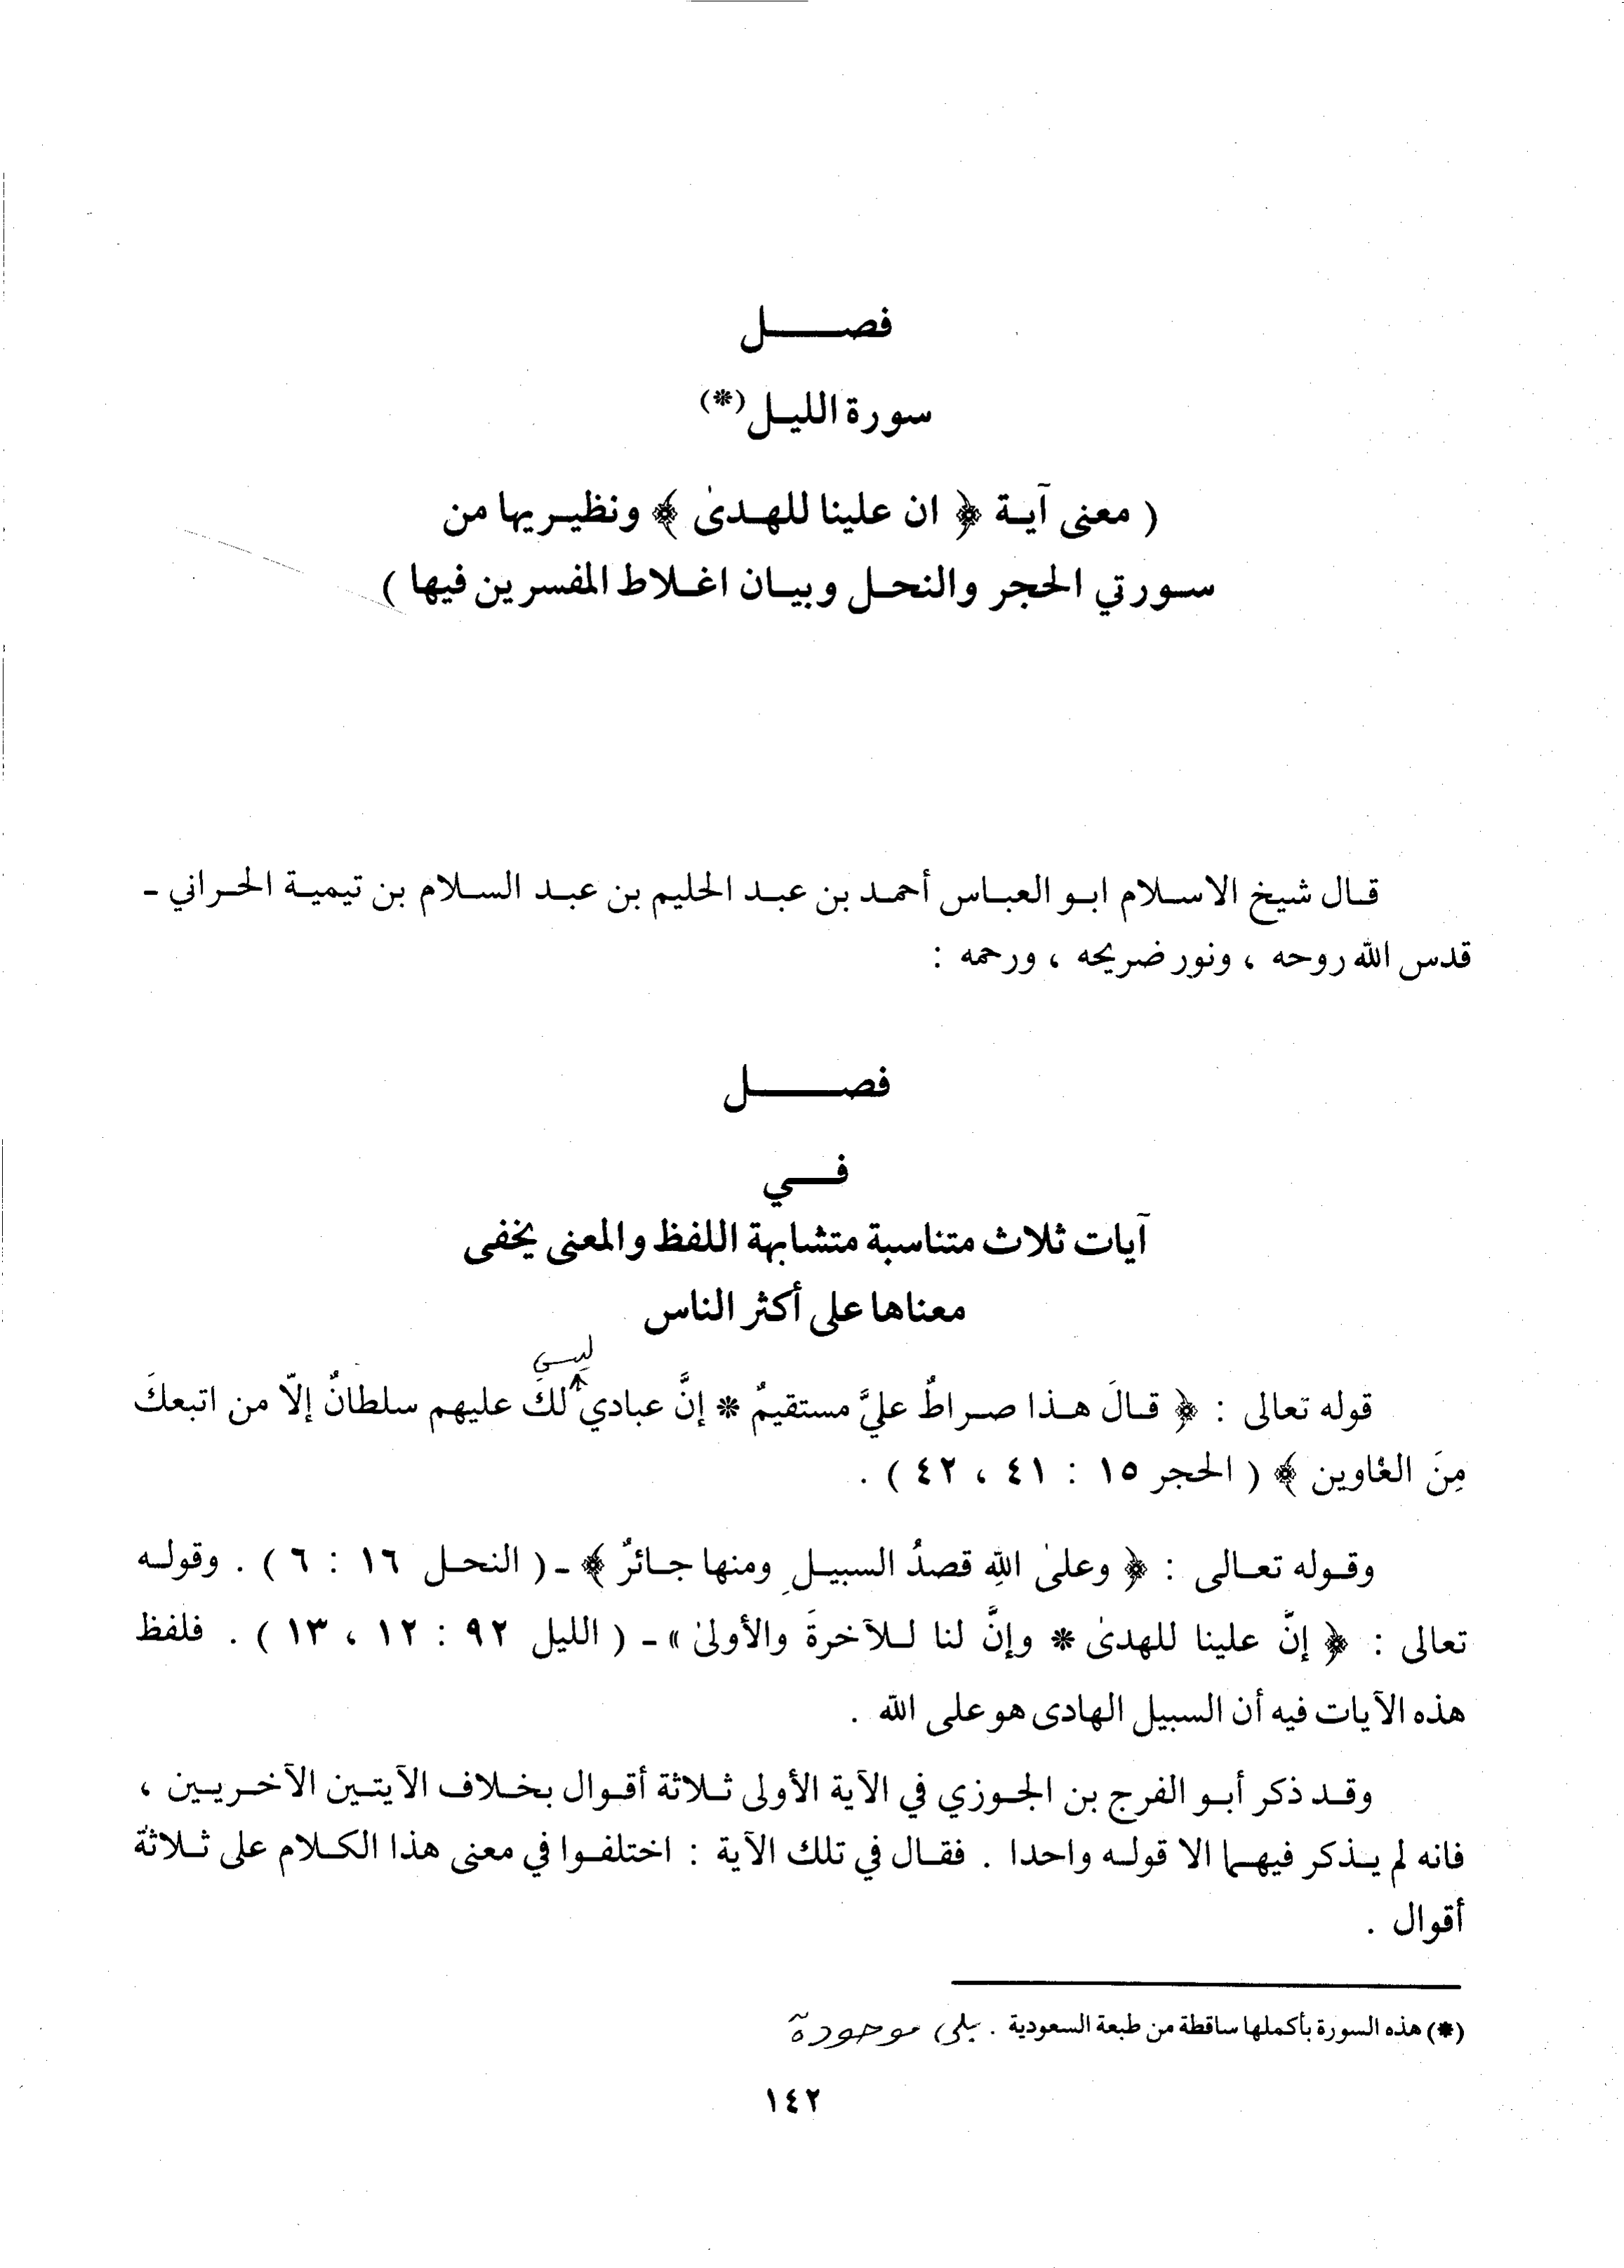 فصل
سورة الليل(*)
( معنى آية ﴿ ان علينا للهدىٰ ﴾ ونظيريها من
سورتي الحجر والنحل وبيان اغلاط المفسرين فيها )
قال شيخ الاسلام ابو العباس أحمد بن عبد الحليم بن عبد السلام بن تيمية الحراني -
قدس الله روحه ، ونور ضريحه ، ورحمه :
فصل
في
آيات ثلاث متناسبة متشابهة اللفظ والمعنى يخفى
معناها على أكثر الناس
ليس
قوله تعالى : ﴿ قالَ هذا صراطٌ عليَّ مستقيمٌ * إنَّ عبادي لكَ عليهم سلطانٌ إلّا من اتبعكَ
مِنَ الغْاوين ﴾ ( الحجر ١٥ : ٤١ ، ٤٢ ) .
وقوله تعالى : ﴿ وعلىٰ اللهِ قصدُ السبيلِ ومنها جائرٌ ﴾ - ( النحل ١٦ : ٦ ) . وقوله
تعالى : ﴿ إنَّ علينا للهدىٰ * وإنَّ لنا للآخرةَ والأولىٰ » - ( الليل ٩٢ : ١٢ ، ١٣ ) . فلفظ
هذه الآيات فيه أن السبيل الهادى هو على الله .
وقد ذكر أبو الفرج بن الجوزي في الآية الأولى ثلاثة أقوال بخلاف الآيتين الآخريين ،
فانه لم يذكر فيهما الا قوله واحدا . فقال في تلك الآية : اختلفوا في معنى هذا الكلام على ثلاثة
أقوال .
(*) هذه السورة بأكملها ساقطة من طبعة السعودية . بلى موجودة
١٤٢